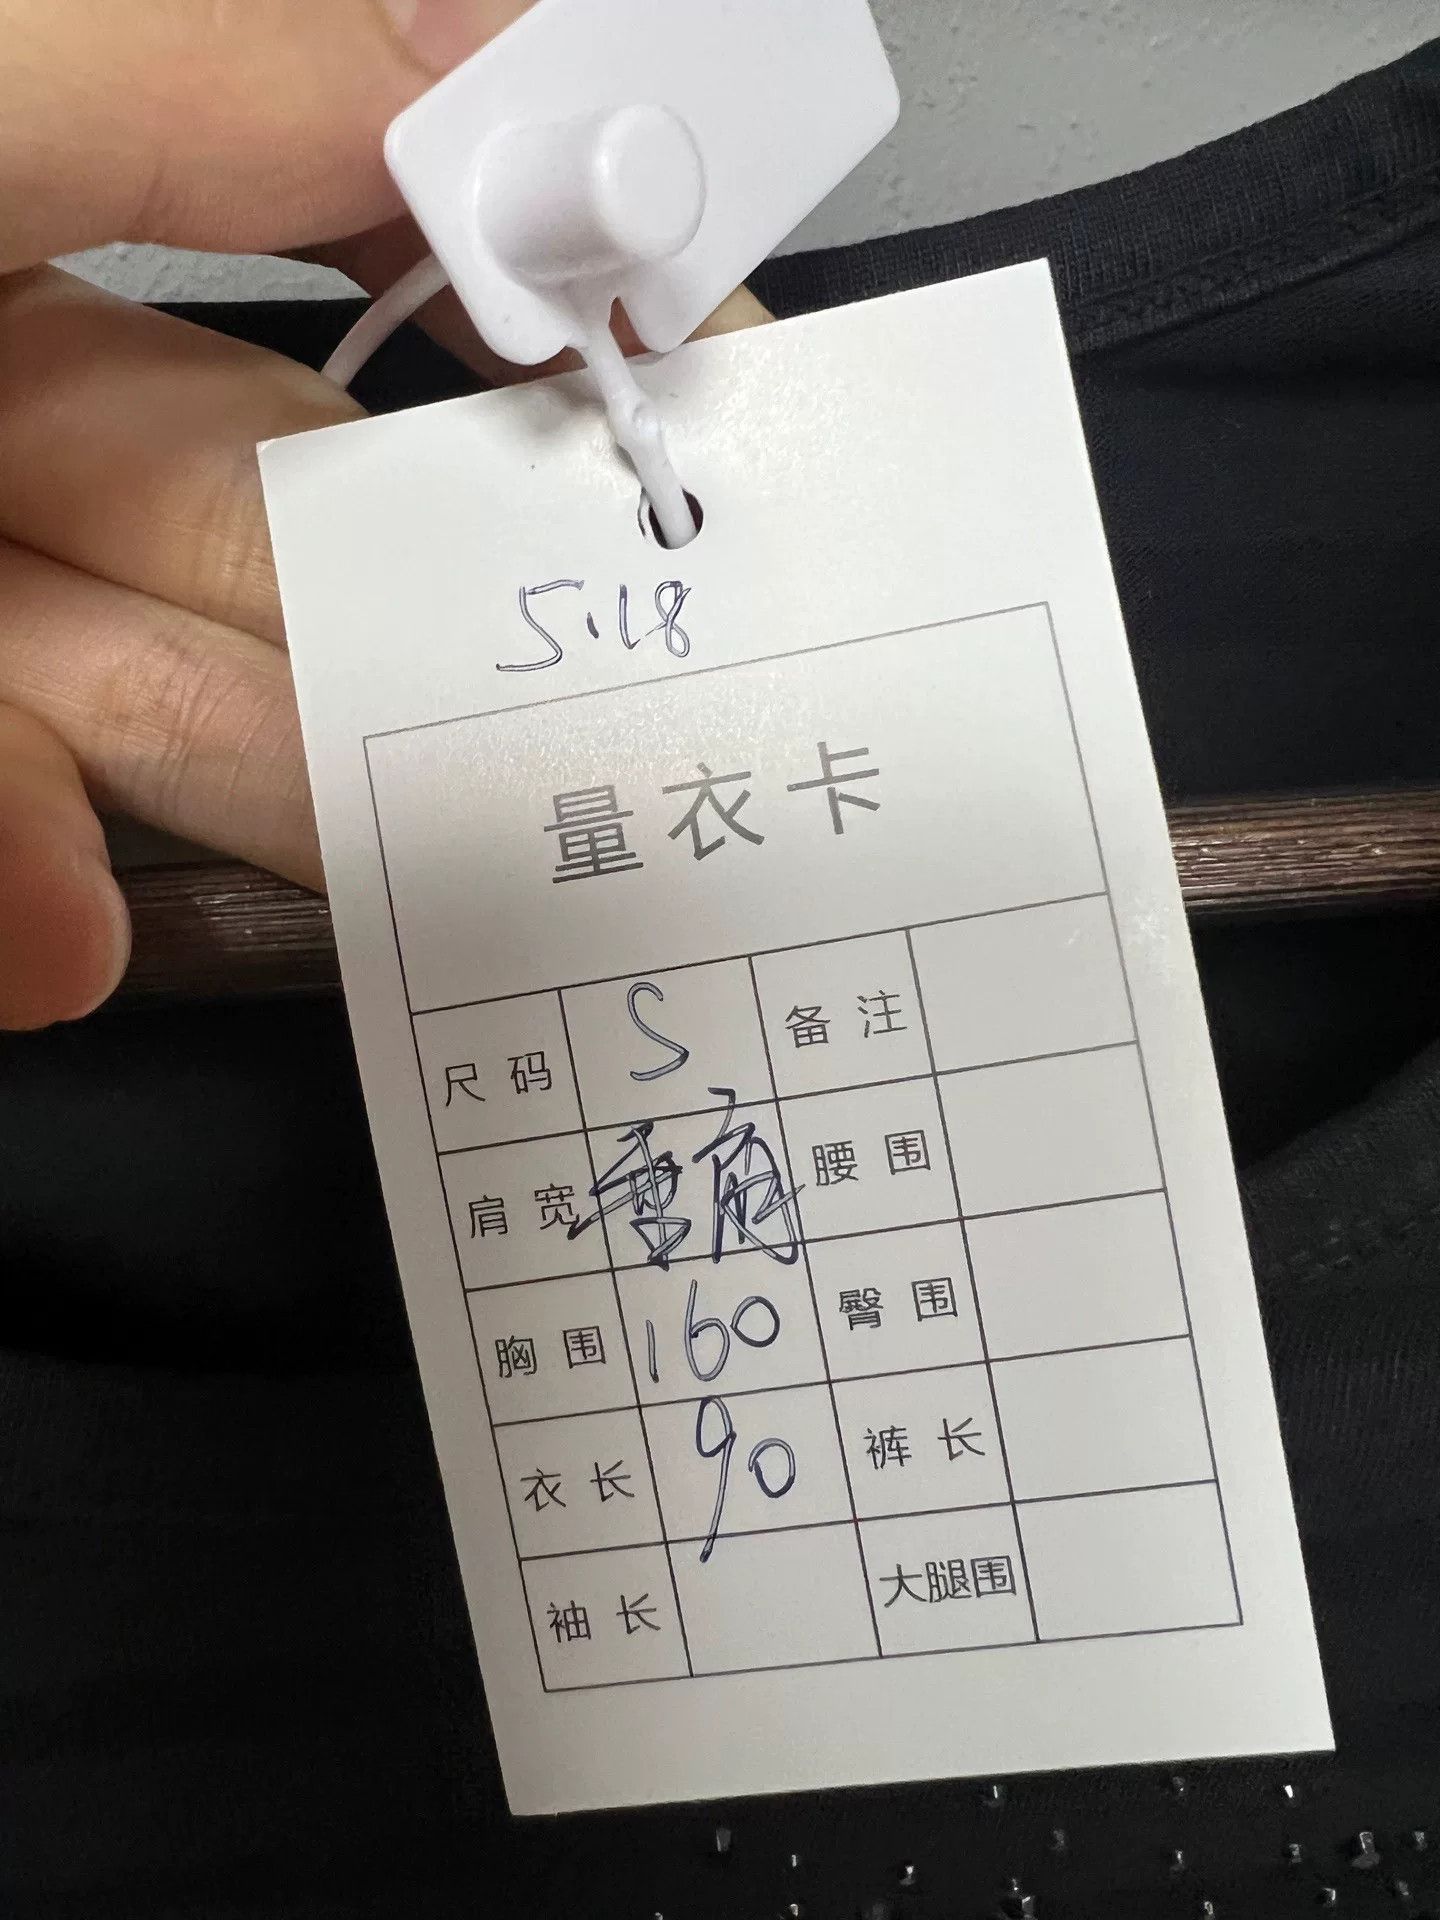 5.18
量衣卡
尺码 S 备注
肩宽 腰围
胸围 160 臀围
衣长 90 裤长
袖长 大腿围